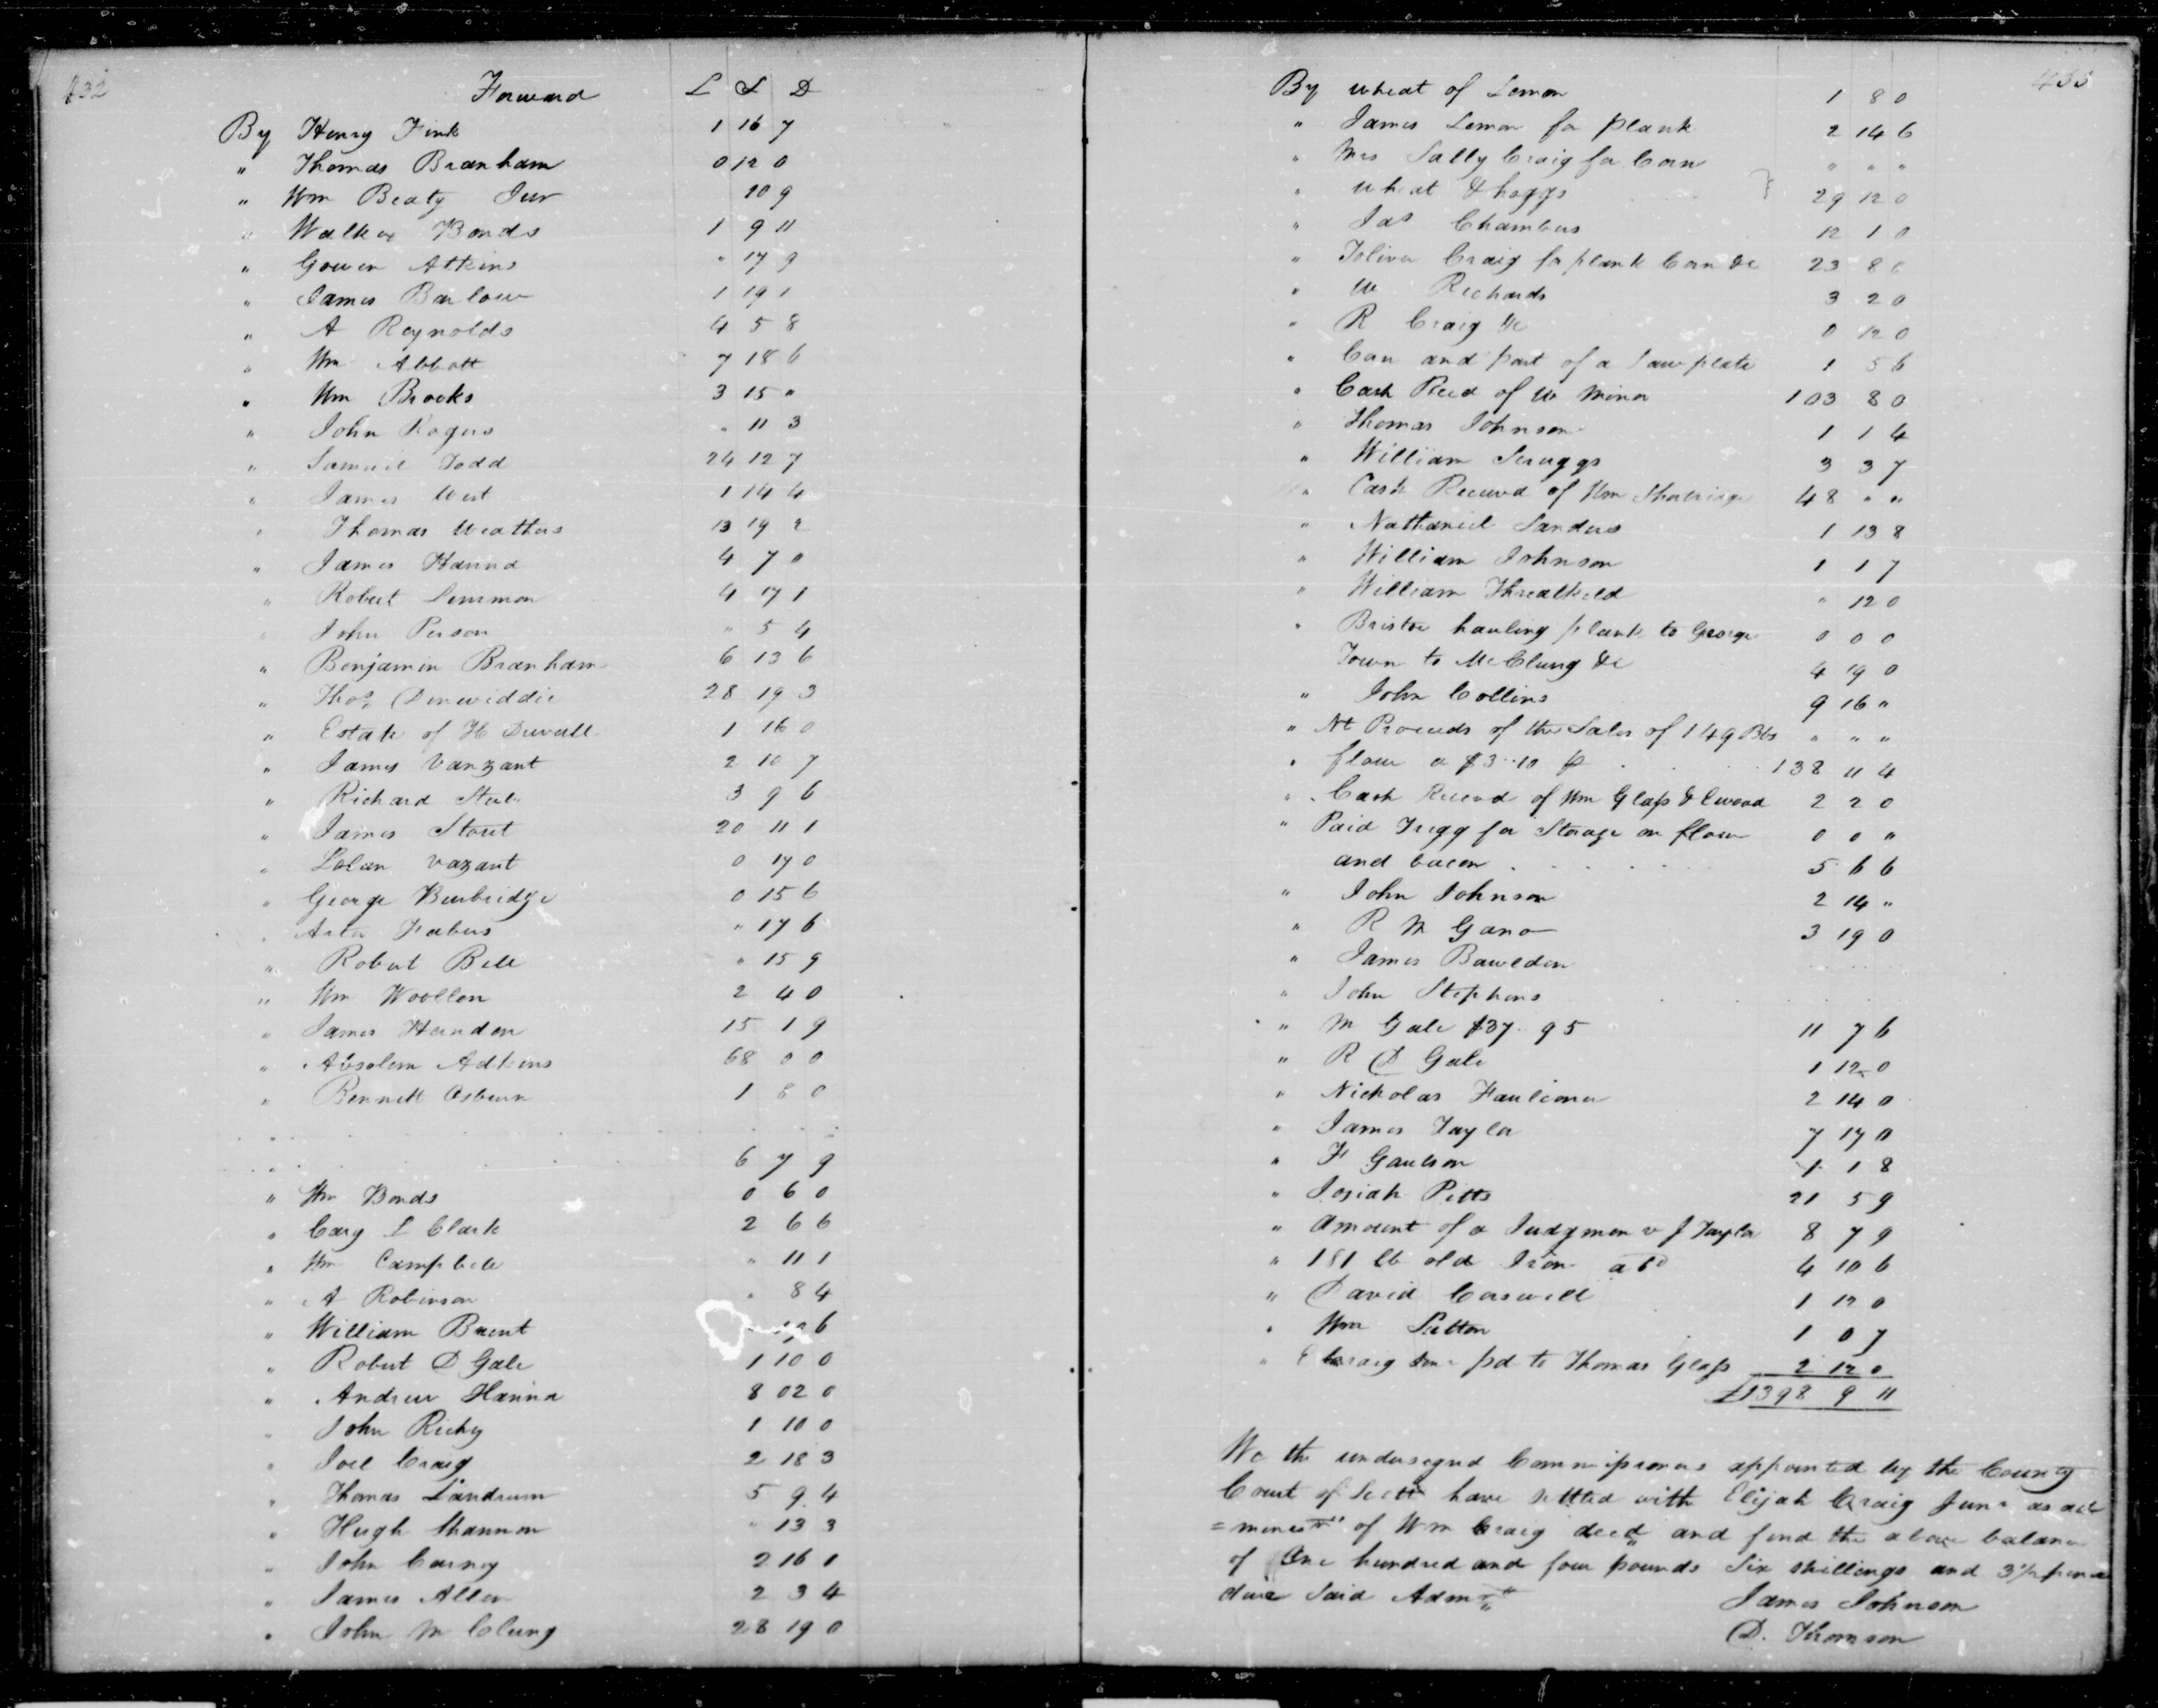 432
Forward £ S D
By Henry Fink 1 16 7
" Thomas Branham 0 12 0
" Wm Beaty Jur 10 9
" Walker Bonds 1 9 11
" Gowen Atkins " 17 9
" James Barlow 1 19 1
" A Reynolds 4 5 8
" Wm Abbott 7 18 6
" Wm Brooks 3 15 "
" John Rogers " 11 3
" Samuel Todd 24 12 7
" James West 1 14 4
" Thomas Weathers 13 19 2
" James Hanna 4 7 0
" Robert Lemmon 4 17 1
" John Person " 5 4
" Benjamin Branham 6 13 6
" Thos Dinwiddie 28 19 3
" Estate of H Duvall 1 16 0
" James Vanzant 2 10 7
" Richard Steele 3 9 6
" James Stout 20 11 1
" Vazant 0 17 0
" George Burbridge 0 15 6
" Fabers " 17 6
" Robert Bell " 15 9
" Wm Woollen 2 4 0
" James Herndon 15 1 9
" Absolem Adkins 68 0 0
" Bennett Osburn 1 8 0
" 6 7 9
" Wm Bonds 0 6 0
" Cary L Clark 2 6 6
" Wm Campbell " 11 1
" A Robinson " 8 4
" William Brent 6
" Robert D Gale 1 10 0
" Andrew Hanna 8 02 0
" John Richy 1 10 0
" Joel Craig 2 18 3
" Thomas Landrum 5 9 4
" Hugh Shannon " 13 3
" John Carney 2 16 1
" James Allen 2 3 4
" John M Clung 28 19 0
433
By wheat of Lemon 1 8 0
" James Lemon for plank 2 14 6
" Mrs Sally Craig for Corn " " "
" wheat & hoggs } 29 12 0
" Jas Chambers 12 1 0
" Toliver Craig for plank Corn &c 23 8
" W Richards 3 2 0
" R Craig &c 0 12 0
" Corn and part of a Saw plate 1 5 6
" Cash Recd of W Minor 103 8 0
" Thomas Johnson 1 1 4
" William Scruggs 3 3 7
" Cash Received of Wm 48 " "
" Nathaniel Sanders 1 13 8
" William Johnson 1 1 7
" William Threalkeld " 12 0
" Bristoe hauling plank to George 0 0 0
Town to McClung &c 4 19 0
" John Collins 9 16 "
" Nt Proceeds of the Sales of 149 Bbs " " "
" flour a $3..10 p 138 11 4
" Cash Received of Wm Glass & 2 2 0
" Paid Trigg for Storage on flour 0 0 "
and bacon 5 6 6
" John Johnson 2 14 "
" R M Gano 3 19 0
" James Bawlden
" John Stephens
" M Gale $37.95 11 7 6
" R D Gale 1 12 0
" Nicholas Faulconer 2 14 0
" James Taylor 7 17 0
" F 1 1 8
" Josiah Pitts 21 5 9
" Amount of a Judgmen v J Taylor 8 7 9
" 181 lb old Iron a 6d 4 10 6
" David Caswell 1 12 0
" Wm Sutton 1 0 7
" E Craig Junr pd to Thomas Glass 2 12 0
£1398 9 11
We the undersigned Commissioners appointed by the County
Court of Scott have settled with Elijah Craig Junr as ad
=ministr of Wm Craig decd and find the above balance
of One hundred and four pounds Six shillings and 3 1/2 pence
due Said Admr
James Johnson
D. Thomson